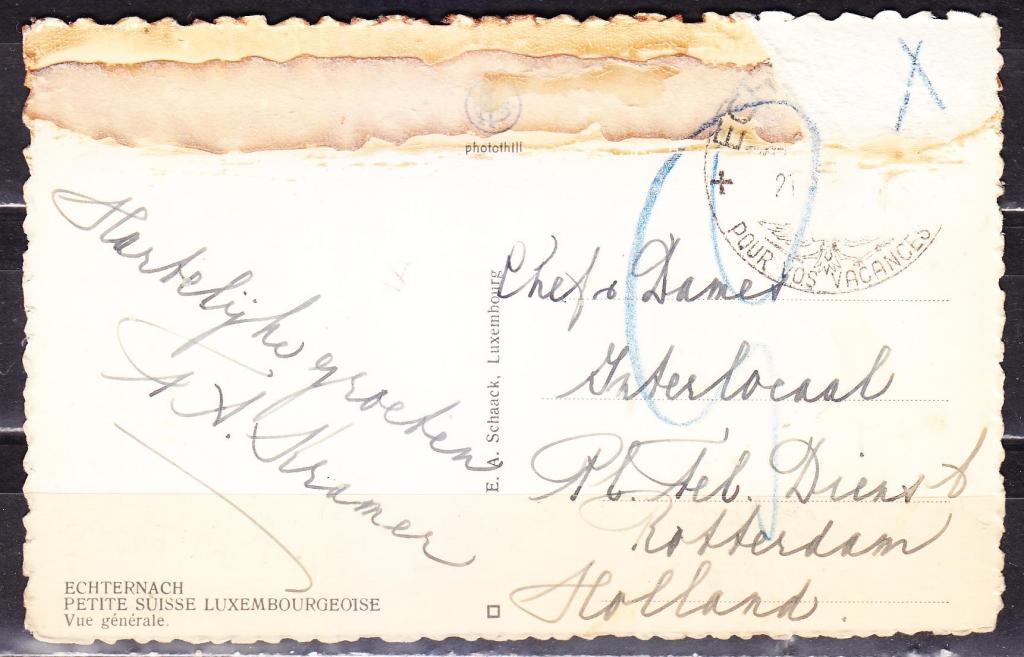 X
photothill
21
POUR VOS VACANCES
Hartelijke groeten
A. Kramer
E. A. Schaack, Luxembourg
Chef & Dames
Interlocaal
Tel. Dienst
Rotterdam
Holland.
ECHTERNACH
PETITE SUISSE LUXEMBOURGEOISE
Vue générale.